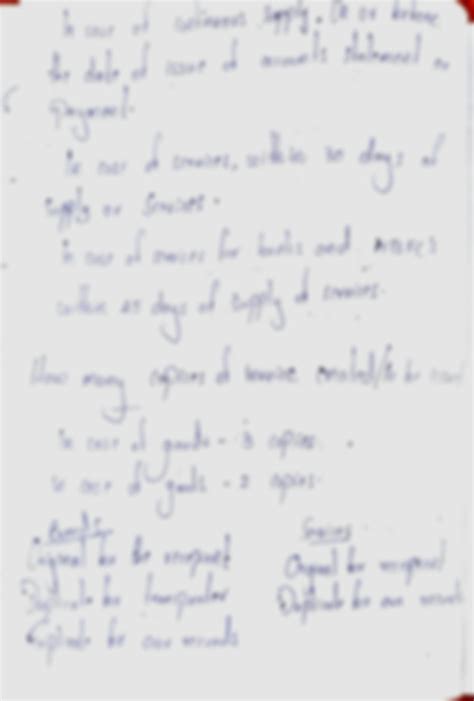 In case of continuous supply, On or before
the date of issue of accounts statement or
payment.
In case of services, within 30 days of
supply or services.
In case of services for banks and
within 45 days of supply of services.
How many copies of invoice created/to be
In case of goods - 3 copies.
In case of goods - 2 copies.
Goods
Original for the recepient
Duplicate for transporter
Triplicate for own records
Services
Original for recepient
Duplicate for own records